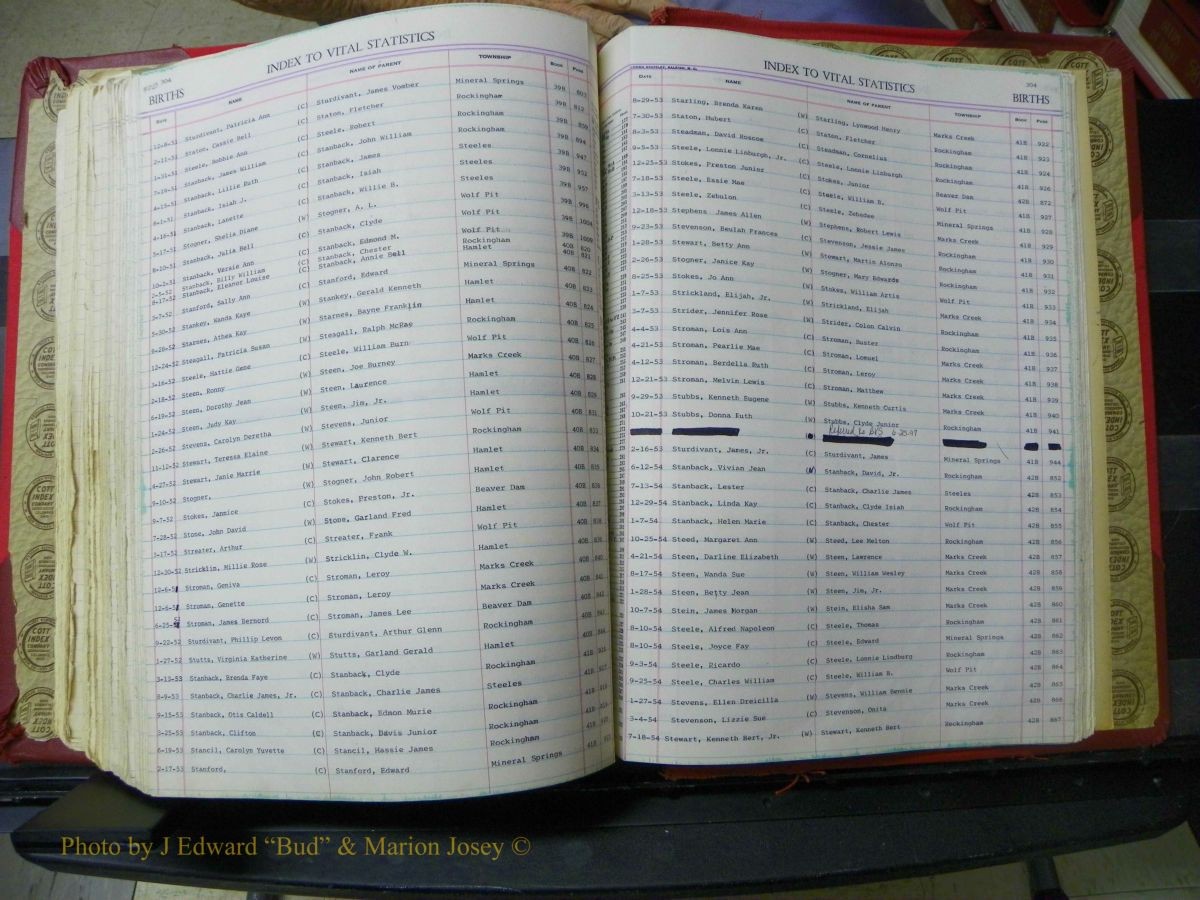 INDEX TO VITAL STATISTICS
BIRTHS
NAME NAME OF PARENT TOWNSHIP BOOK PAGE
12-8-51 Sturdivant, Patricia Ann (C) Sturdivant, James Vomber Mineral Springs 39B 803
2-11-51 Staton, Cassie Bell (C) Staton, Fletcher Rockingham 39B 812
1-31-51 Steele, Bobbie Ann (C) Steele, Robert Rockingham 39B 859
7-19-51 Stanback, James William (C) Stanback, John William Rockingham 39B 894
4-15-51 Stanback, Lillie Ruth (C) Stanback, James Steeles 39B 947
Stanback, Isiah J. (C) Stanback, Isiah Steeles 39B 952
4-16-51 Stanback, Lanette (C) Stanback, Willie B. Steeles 39B 957
5-17-51 Stogner, Shelia Diane (W) Stogner, A. L. Wolf Pit 39B 996
8-10-51 Stanback, Julia Bell (C) Stanback, Clyde Wolf Pit 39B 1004
10-2-51 Stanback, Versie Ann (C) Stanback, Edmond M. Wolf Pit 39B 1009
2-5-52 Stanback, Billy William (C) Stanback, Chester Rockingham 40B 820
8-17-52 Stanback, Eleanor Louise (C) Stanback, Annie Bell Hamlet 40B 821
3-7-52 Stanford, Sally Ann (C) Stanford, Edward Mineral Springs 40B 822
5-30-52 Stankey, Wanda Kaye (W) Stankey, Gerald Kenneth Hamlet 40B 823
Starnes, Athea Kay (W) Starnes, Bayne Franklin Hamlet 40B 824
12-24-52 Steagall, Patricia Susan (W) Steagall, Ralph McRae Rockingham 40B 825
3-16-52 Steele, Hattie Gene (C) Steele, William Burn Wolf Pit 40B 826
2-18-52 Steen, Ronny (W) Steen, Joe Burney Marks Creek 40B 827
6-19-52 Steen, Dorothy Jean (W) Steen, Laurence Hamlet 40B 828
1-24-52 Steen, Judy Kay (W) Steen, Jim, Jr. Hamlet 40B 829
2-26-52 Stevens, Carolyn Deretha (W) Stevens, Junior Wolf Pit 40B 831
11-12-52 Stewart, Teressa Elaine (W) Stewart, Kenneth Bert Rockingham 40B 833
4-27-52 Stewart, Janie Marrie (W) Stewart, Clarence Hamlet 40B 834
9-10-52 Stogner, (W) Stogner, John Robert Hamlet 40B 835
9-7-52 Stokes, Jannice (C) Stokes, Preston, Jr. Beaver Dam 40B 836
7-28-52 Stone, John David (W) Stone, Garland Fred Hamlet 40B 837
3-17-52 Streater, Arthur (C) Streater, Frank Wolf Pit 40B 838
12-30-52 Stricklin, Millie Rose (W) Stricklin, Clyde W. Hamlet 40B 840
12-6-5 Stroman, Geniva (C) Stroman, Leroy Marks Creek 40B 841
12-6-5 Stroman, Genette (C) Stroman, Leroy Marks Creek 40B 842
6-25-5 Stroman, James Bernord (C) Stroman, James Lee Beaver Dam 40B 843
9-22-52 Sturdivant, Phillip Levon (C) Sturdivant, Arthur Glenn Rockingham
1-27-52 Stutts, Virginia Katherine (W) Stutts, Garland Gerald Hamlet
3-13-53 Stanback, Brenda Faye (C) Stanback, Clyde Rockingham
8-9-53 Stanback, Charlie James, Jr. (C) Stanback, Charlie James Steeles
9-15-53 Stanback, Otis Caldell (C) Stanback, Edmon Murie Rockingham
3-25-53 Stanback, Clifton (C) Stanback, Davis Junior Rockingham
6-19-53 Stancil, Carolyn Yuvette (C) Stancil, Hassie James Rockingham
2-17-53 Stanford, (C) Stanford, Edward Mineral Springs
INDEX TO VITAL STATISTICS
304
BIRTHS
DATE NAME NAME OF PARENT TOWNSHIP BOOK PAGE
8-29-53 Starling, Brenda Karen (W) Starling, Lynwood Henry Marks Creek 41B 922
7-30-53 Staton, Hubert (C) Staton, Fletcher Rockingham 41B 923
8-3-53 Steadman, David Roscoe (C) Steadman, Cornelius Rockingham 41B 924
9-5-53 Steele, Lonnie Linburgh, Jr. (C) Steele, Lonnie Linburgh Rockingham 41B 926
12-25-53 Stokes, Preston Junior (C) Stokes, Junior Beaver Dam 42B 872
7-18-53 Steele, Essie Mae (C) Steele, William B. Wolf Pit 41B 927
3-13-53 Steele, Zebulon (C) Steele, Zebedee Mineral Springs 41B 928
12-18-53 Stephens James Allen (W) Stephens, Robert Lewis Marks Creek 41B 929
9-23-53 Stevenson, Beulah Frances (C) Stevenson, Jessie James Rockingham 41B 930
1-28-53 Stewart, Betty Ann (W) Stewart, Martin Alonzo Rockingham 41B 931
2-26-53 Stogner, Janice Kay (W) Stogner, Mary Edwards Rockingham 41B 932
8-25-53 Stokes, Jo Ann (W) Stokes, William Artis Wolf Pit 41B 933
1-7-53 Strickland, Elijah, Jr. (W) Strickland, Elijah Marks Creek 41B 934
3-7-53 Strider, Jennifer Rose (W) Strider, Colon Calvin Rockingham 41B 935
4-4-53 Stroman, Lois Ann (C) Stroman, Buster Rockingham 41B 936
4-21-53 Stroman, Pearlie Mae (C) Stroman, Lomuel Marks Creek 41B 937
4-12-53 Stroman, Berdella Ruth (C) Stroman, Leroy Marks Creek 41B 938
12-21-53 Stroman, Melvin Lewis (C) Stroman, Matthew Marks Creek 41B 939
9-29-53 Stubbs, Kenneth Eugene (W) Stubbs, Kenneth Curtis Marks Creek 41B 940
10-21-53 Stubbs, Donna Euth (W) Stubbs, Clyde Junior Rockingham 41B 941
Referred to BVS 6-25-97
2-16-53 Sturdivant, James, Jr. (C) Sturdivant, James Mineral Springs 41B 944
6-12-54 Stanback, Vivian Jean Stanback, David, Jr. Rockingham 42B 852
7-13-54 Stanback, Lester (C) Stanback, Charlie James Steeles 42B 853
12-29-54 Stanback, Linda Kay (C) Stanback, Clyde Isiah Rockingham 42B 854
1-7-54 Stanback, Helen Marie (C) Stanback, Chester Wolf Pit 42B 855
10-25-54 Steed, Margaret Ann (W) Steed, Lee Melton Rockingham 42B 856
4-21-54 Steen, Darline Elizabeth (W) Steen, Lawrence Marks Creek 42B 857
8-17-54 Steen, Wanda Sue (W) Steen, William Wesley Marks Creek 42B 858
1-28-54 Steen, Betty Jean (W) Steem, Jim, Jr. Marks Creek 42B 859
10-7-54 Stein, James Morgan (W) Stein, Elisha Sam Marks Creek 42B 860
8-10-54 Steele, Alfred Napoleon (C) Steele, Thomas Rockingham 42B 861
8-10-54 Steele, Joyce Fay (C) Steele, Edward Mineral Springs 42B 862
9-3-54 Steele, Ricardo (C) Steele, Lonnie Lindburg Rockingham 42B 863
9-25-54 Steele, Charles William (C) Steele, William B. Wolf Pit 42B 864
1-27-54 Stevens, Ellen Dreicilla (W) Stevens, William Bennie Marks Creek 42B 865
3-4-54 Stevenson, Lizzie Sue (C) Stevenson, Onita Marks Creek 42B 866
7-18-54 Stewart, Kenneth Bert, Jr. (W) Stewart, Kenneth Bert Rockingham 42B 867
Photo by J Edward “Bud” & Marion Josey ©